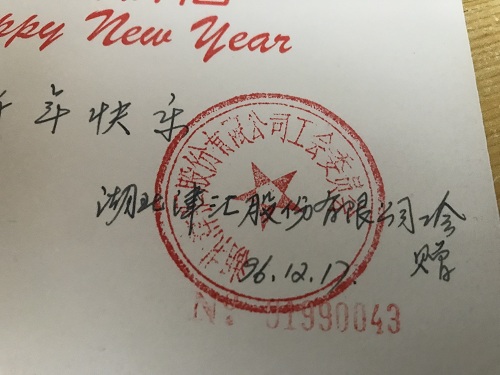 Happy New Year
新年快乐
湖北津汇股份有限公司工会委员会
湖北津汇股份有限公司工会
96.12.17.
赠
№ 01990043